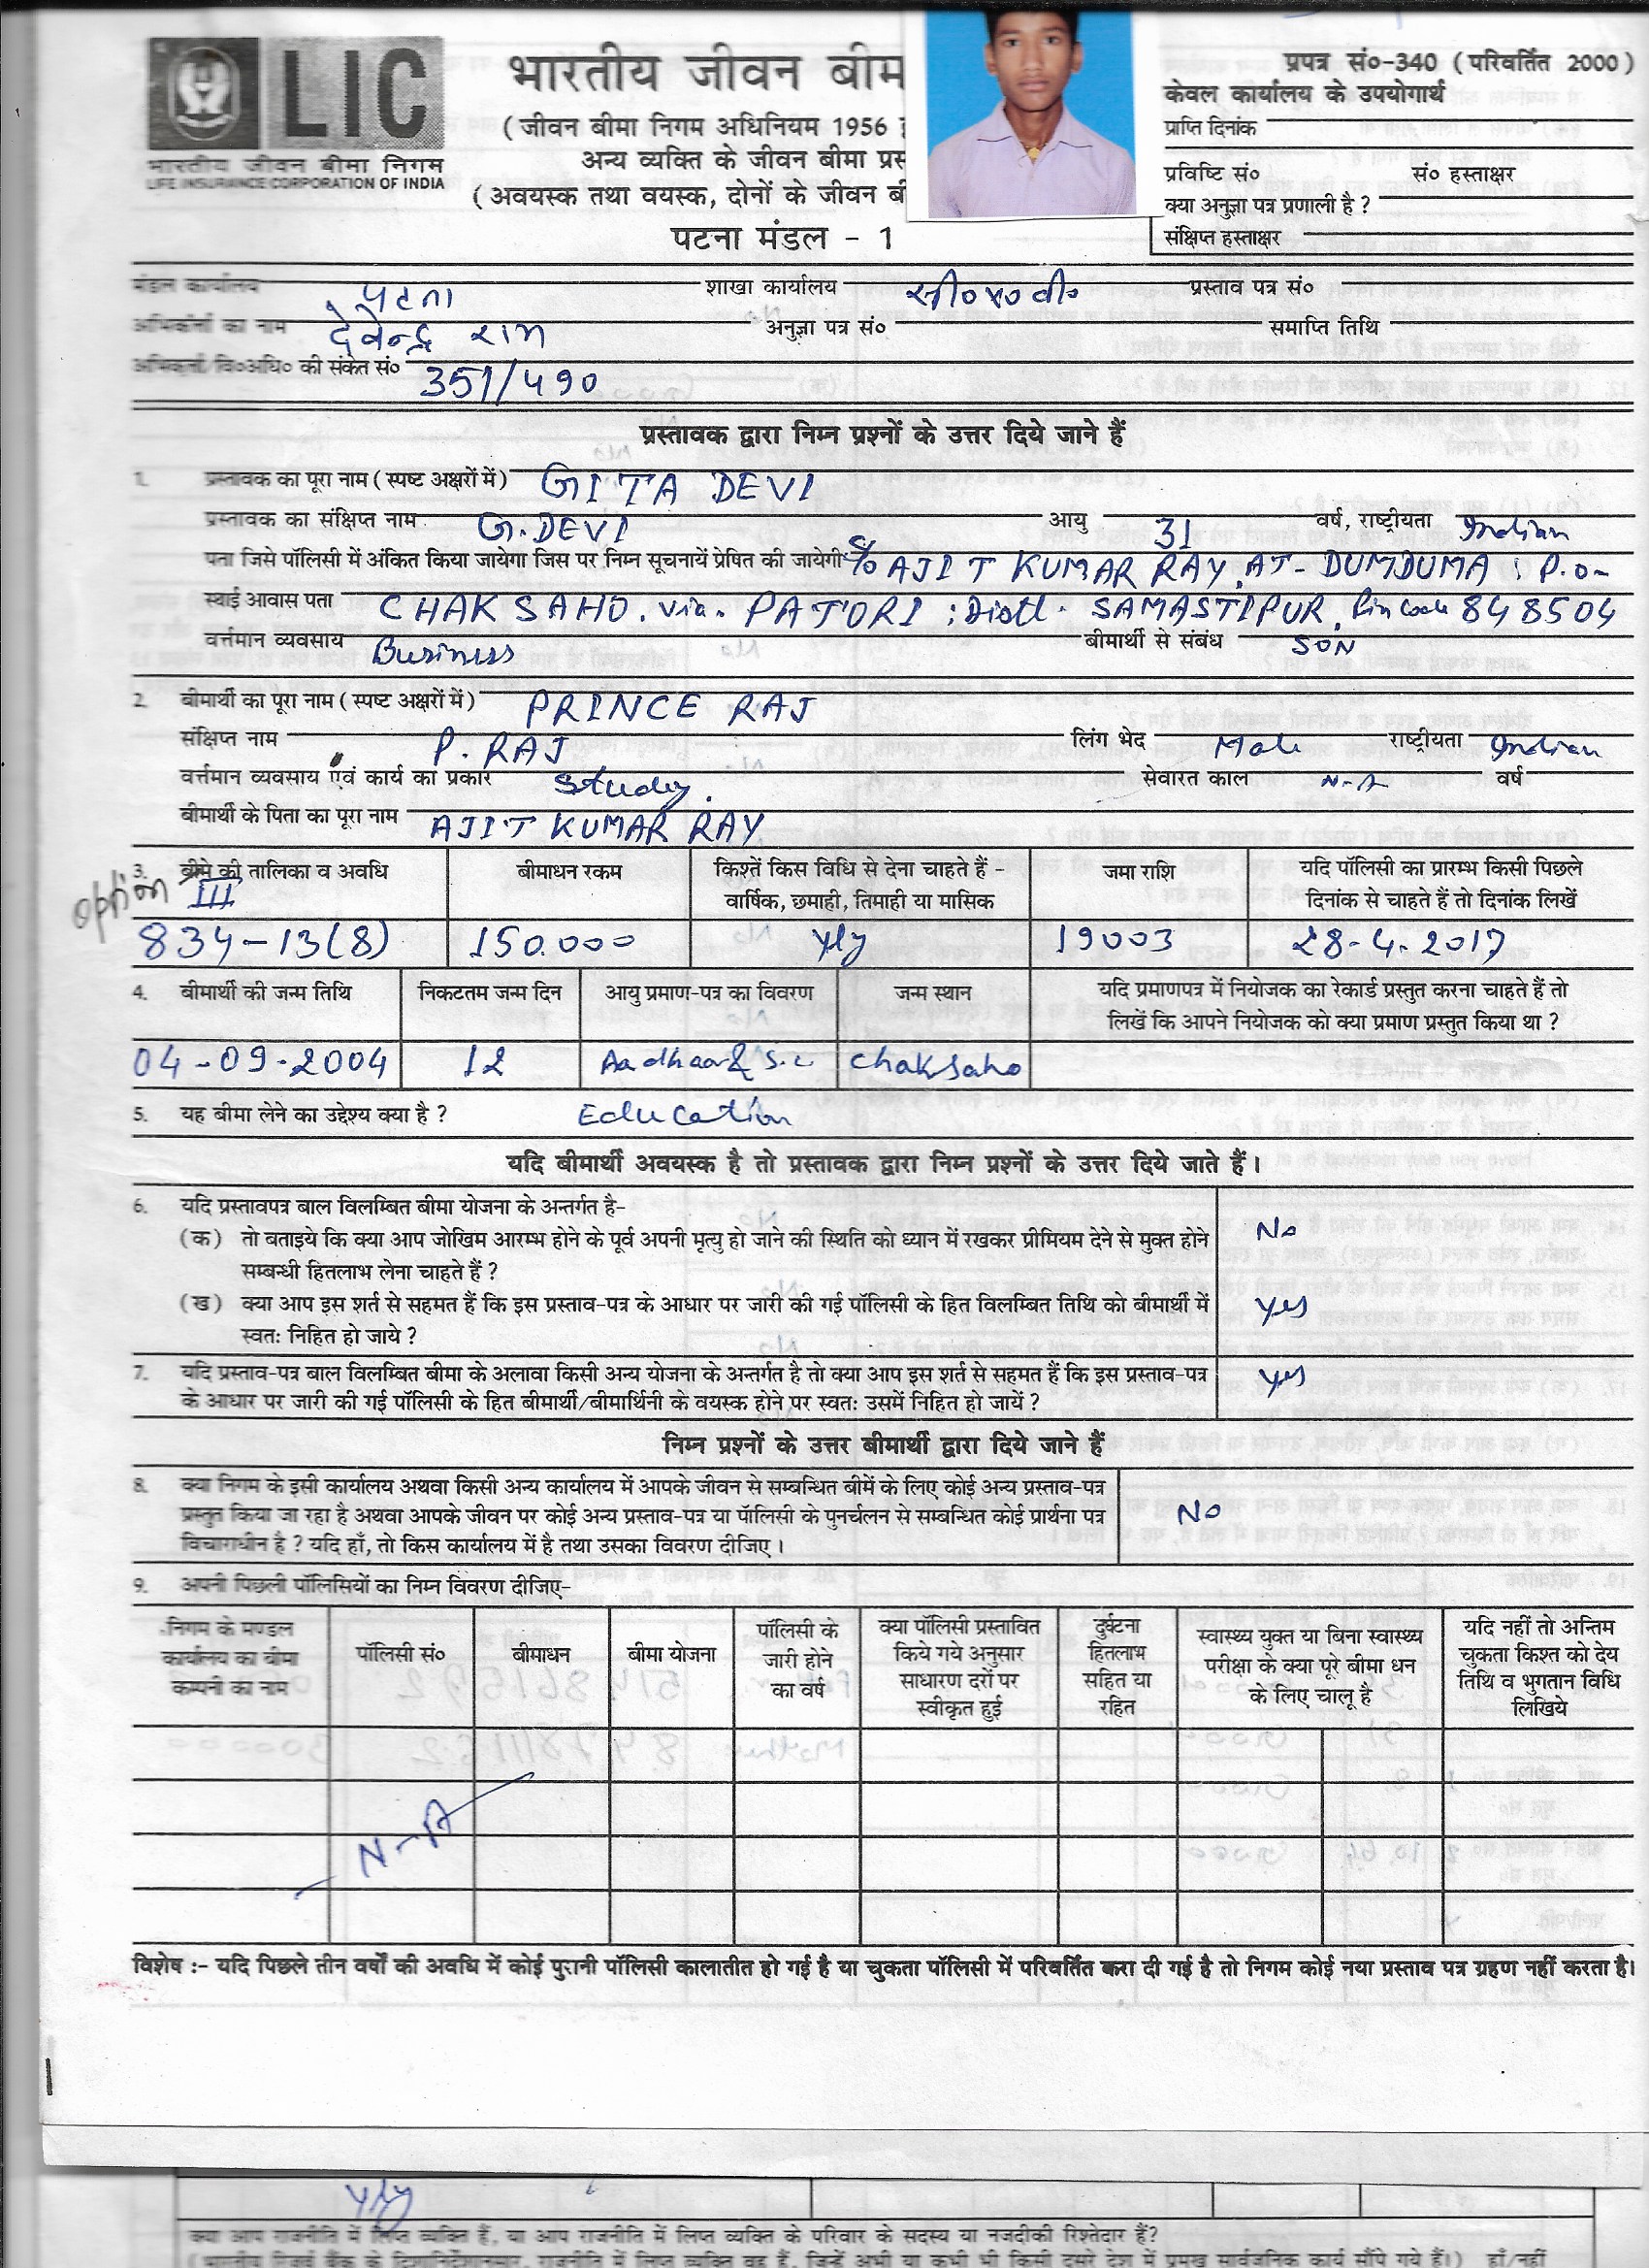 LIC
भारतीय जीवन बीमा निगम
LIFE INSURANCE CORPORATION OF INDIA
भारतीय जीवन बीम
( जीवन बीमा निगम अधिनियम 1956
अन्य व्यक्ति के जीवन बीमा प्रस
( अवयस्क तथा वयस्क, दोनों के जीवन बी
पटना मंडल - 1
प्रपत्र सं०-340 ( परिवर्तित 2000 )
केवल कार्यालय के उपयोगार्थ
प्राप्ति दिनांक
प्रविष्टि सं० सं० हस्ताक्षर
क्या अनुज्ञा पत्र प्रणाली है ?
संक्षिप्त हस्ताक्षर
मंडल कार्यालय पटना शाखा कार्यालय प्रस्ताव पत्र सं०
अभिकर्त्ता का नाम देवेन्द्र राम अनुज्ञा पत्र सं० समाप्ति तिथि
अभिकर्त्ता/वि०अधि० की संकेत सं० 351/490
प्रस्तावक द्वारा निम्न प्रश्नों के उत्तर दिये जाने हैं
1. प्रस्तावक का पूरा नाम ( स्पष्ट अक्षरों में ) GITA DEVI
प्रस्तावक का संक्षिप्त नाम G. DEVI आयु 31 वर्ष, राष्ट्रीयता Indian
पता जिसे पॉलिसी में अंकित किया जायेगा जिस पर निम्न सूचनायें प्रेषित की जायेगी C/o AJIT KUMAR RAY, AT- DUMDUMA ; P.O-
स्थाई आवास पता CHAK SAHO. via. PATORI ; Distt. SAMASTIPUR, Pin Code 848504
वर्त्तमान व्यवसाय Business बीमार्थी से संबंध SON
2. बीमार्थी का पूरा नाम ( स्पष्ट अक्षरों में ) PRINCE RAJ
संक्षिप्त नाम P. RAJ लिंग भेद Male राष्ट्रीयता Indian
वर्त्तमान व्यवसाय एवं कार्य का प्रकार Study. सेवारत काल N-A वर्ष
बीमार्थी के पिता का पूरा नाम AJIT KUMAR RAY
3. बीमे की तालिका व अवधि बीमाधन रकम किश्तें किस विधि से देना चाहते हैं - वार्षिक, छमाही, तिमाही या मासिक जमा राशि यदि पॉलिसी का प्रारम्भ किसी पिछले दिनांक से चाहते हैं तो दिनांक लिखें
option III
834-13(8) 150.000 yly 19003 28-4-2017
4. बीमार्थी की जन्म तिथि निकटतम जन्म दिन आयु प्रमाण-पत्र का विवरण जन्म स्थान यदि प्रमाणपत्र में नियोजक का रेकार्ड प्रस्तुत करना चाहते हैं तो लिखें कि आपने नियोजक को क्या प्रमाण प्रस्तुत किया था ?
04-09-2004 12 Aadhaar & S.C Chaksaho
5. यह बीमा लेने का उद्देश्य क्या है ? Education
यदि बीमार्थी अवयस्क है तो प्रस्तावक द्वारा निम्न प्रश्नों के उत्तर दिये जाते हैं।
6. यदि प्रस्तावपत्र बाल विलम्बित बीमा योजना के अन्तर्गत है-
(क) तो बताइये कि क्या आप जोखिम आरम्भ होने के पूर्व अपनी मृत्यु हो जाने की स्थिति को ध्यान में रखकर प्रीमियम देने से मुक्त होने No
सम्बन्धी हितलाभ लेना चाहते हैं ?
(ख) क्या आप इस शर्त से सहमत हैं कि इस प्रस्ताव-पत्र के आधार पर जारी की गई पॉलिसी के हित विलम्बित तिथि को बीमार्थी में yes
स्वतः निहित हो जाये ?
7. यदि प्रस्ताव-पत्र बाल विलम्बित बीमा के अलावा किसी अन्य योजना के अन्तर्गत है तो क्या आप इस शर्त से सहमत हैं कि इस प्रस्ताव-पत्र yes
के आधार पर जारी की गई पॉलिसी के हित बीमार्थी/बीमार्थिनी के वयस्क होने पर स्वतः उसमें निहित हो जायें ?
निम्न प्रश्नों के उत्तर बीमार्थी द्वारा दिये जाने हैं
8. क्या निगम के इसी कार्यालय अथवा किसी अन्य कार्यालय में आपके जीवन से सम्बन्धित बीमें के लिए कोई अन्य प्रस्ताव-पत्र
प्रस्तुत किया जा रहा है अथवा आपके जीवन पर कोई अन्य प्रस्ताव-पत्र या पॉलिसी के पुनर्चलन से सम्बन्धित कोई प्रार्थना पत्र NO
विचाराधीन है ? यदि हाँ, तो किस कार्यालय में है तथा उसका विवरण दीजिए ।
9. अपनी पिछली पॉलिसियों का निम्न विवरण दीजिए-
निगम के मण्डल कार्यालय का बीमा कम्पनी का नाम पॉलिसी सं० बीमाधन बीमा योजना पॉलिसी के जारी होने का वर्ष क्या पॉलिसी प्रस्तावित किये गये अनुसार साधारण दरों पर स्वीकृत हुई दुर्घटना हितलाभ सहित या रहित स्वास्थ्य युक्त या बिना स्वास्थ्य परीक्षा के क्या पूरे बीमा धन के लिए चालू है यदि नहीं तो अन्तिम चुकता किश्त को देय तिथि व भुगतान विधि लिखिये
N-A
विशेष :- यदि पिछले तीन वर्षों की अवधि में कोई पुरानी पॉलिसी कालातीत हो गई है या चुकता पॉलिसी में परिवर्तित करा दी गई है तो निगम कोई नया प्रस्ताव पत्र ग्रहण नहीं करता है।
yly
क्या आप राजनीति में लिप्त व्यक्ति हैं, या आप राजनीति में लिप्त व्यक्ति के परिवार के सदस्य या नजदीकी रिश्तेदार हैं?